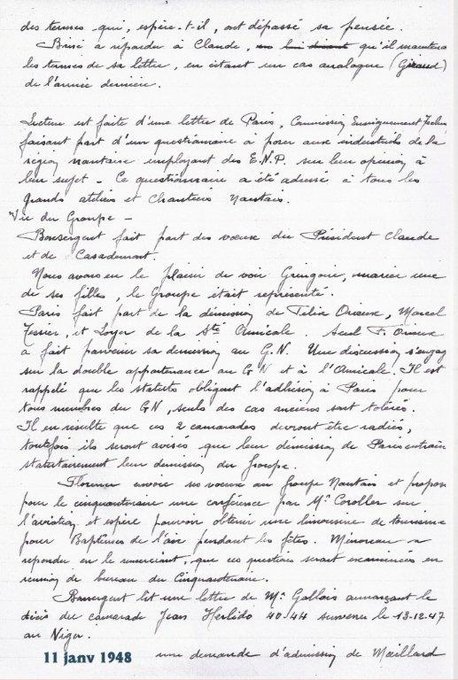 des termes qui, espère-t-il, ont dépassé sa pensée.
Brisé a répondu à Claude, qu'il maintenu
les termes de sa lettre, en citant un cas analogue (Giraud)
de l'année dernière.
Lecture est faite d'une lettre de Paris, Commission Enseignement
faisant part d'un questionnaire à poser aux industriels de la
région nantaise employant des E.N.P. sur leur opinion à
leur sujet - Ce questionnaire a été adressé à tous les
grands ateliers et Chantiers Nantais.
Vie du Groupe -
Bonsergent fait part des vœux du Président Claude
et de Casademont.
Nous avons eu le plaisir de voir Gringoire, marier une
de ses filles, le Groupe était représenté.
Paris fait part de la démission de Félix Orieux, Marcel
Tessier, et Loyer de la Sté Amicale. Seul F. Orieux
a fait parvenir sa démission au G.N. Une discussion s'engage
sur la double appartenance au G.N et à l'Amicale. Il est
rappelé que les statuts obligent l'adhésion à Paris pour
tous membres du GN, seuls des cas anciens sont tolérés.
Il en résulte que ces 2 camarades devront être radiés,
toutefois ils seront avisés que leur démission de Paris entraîne
statutairement leur démission du Groupe.
envoie ses vœux au Groupe Nantais et propose
pour le cinquantenaire une conférence par Mr Coroller sur
l'aviation et espère pouvoir obtenir une limousine de tourisme
pour Baptêmes de l'air pendant les fêtes. Minoreau a
répondu en le remerciant, que ces questions seront examinées en
réunion de bureau du Cinquantenaire.
Bonsergent lit une lettre de Mr Gallais annonçant le
décès du camarade Jean Herlido 40-44 survenu le 13-12-47
au Niger.
11 janv 1948 une demande d'admission de Maillard